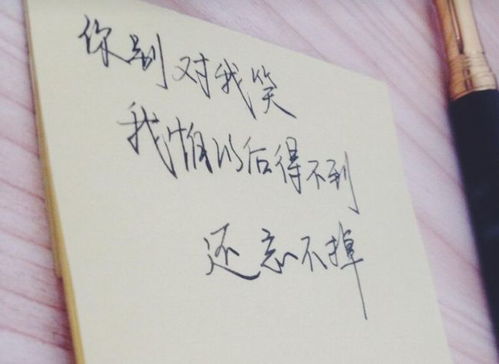 你别对我笑
我怕以后得不到
还忘不掉